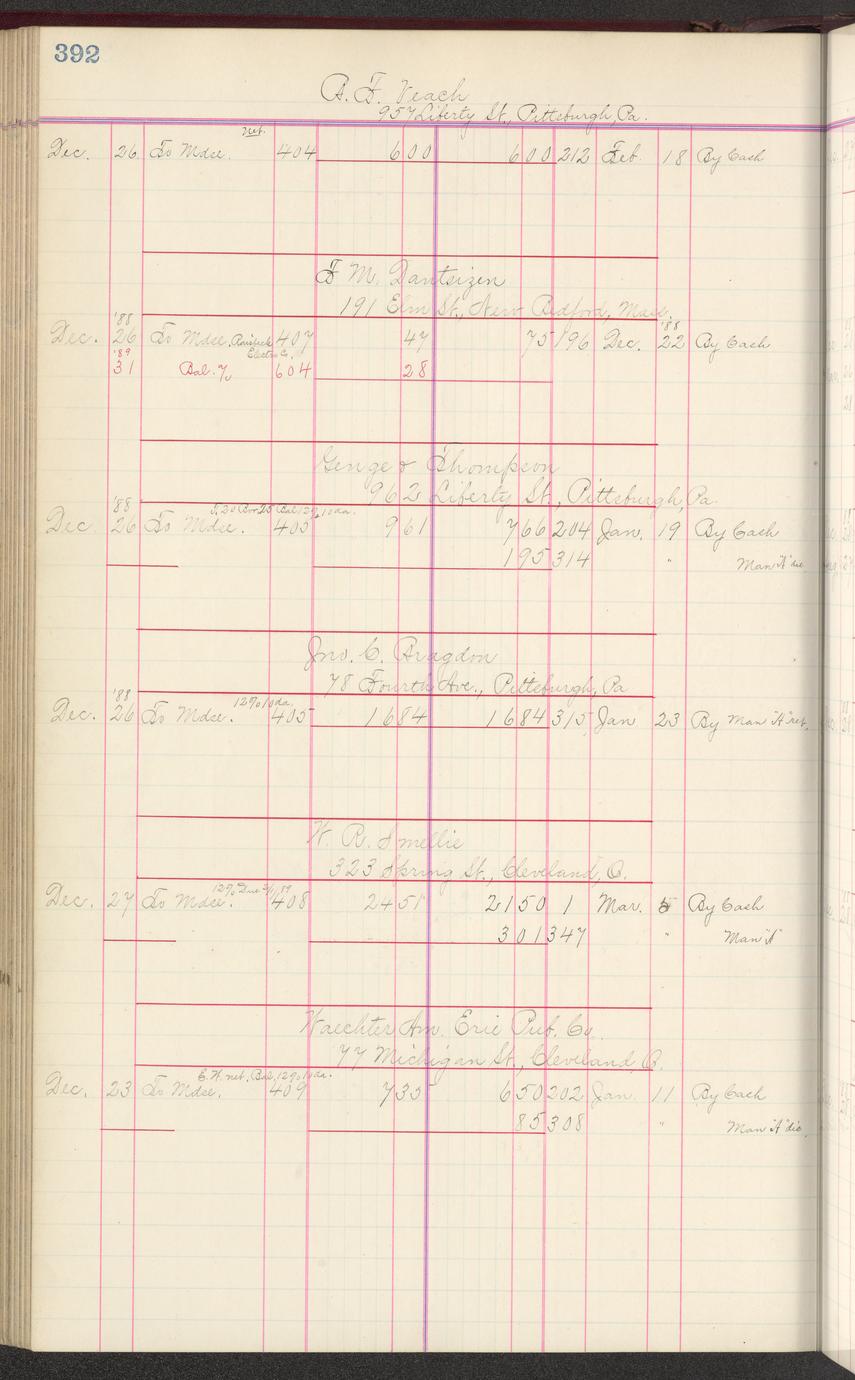 392
A. F. Veach
957 Liberty St., Pittsburgh, Pa.
net.
Dec. 26 To Mdse. 404 600 600 212 Feb. 18 By Cash
F M. Dantsizen
191 Elm St., New Bedford, Mass.
'88 '88
Dec. 26 To Mdse. 407 47 75 196 Dec. 22 By Cash
'89 Electro Co.
31 Bal. 604 28
Genge & Thompson
962 Liberty St., Pittsburgh, Pa.
'88 Bal 12% 10 da.
Dec. 26 To Mdse. 405 961 766 204 Jan. 19 By Cash
195 314 " Man "A" dis
Jno. C. Bragdon
78 Fourth Ave., Pittsburgh, Pa
'88 12% 10 da.
Dec. 26 To Mdse. 405 1684 1684 315 Jan 23 By Man "A" ret.
W. R. Smellie
323 Spring St., Cleveland, O.
12% Due 3/1/89
Dec. 27 To Mdse. 408 2451 2150 1 Mar. 5 By Cash
301 347 " Man "A"
Waechter Am. Erie Pub. Co.
77 Michigan St., Cleveland, O.
E.W. net, Bal. 12% 10 da.
Dec. 23 To Mdse. 409 735 650 202 Jan. 11 By Cash
85 308 " Man "A" dis.